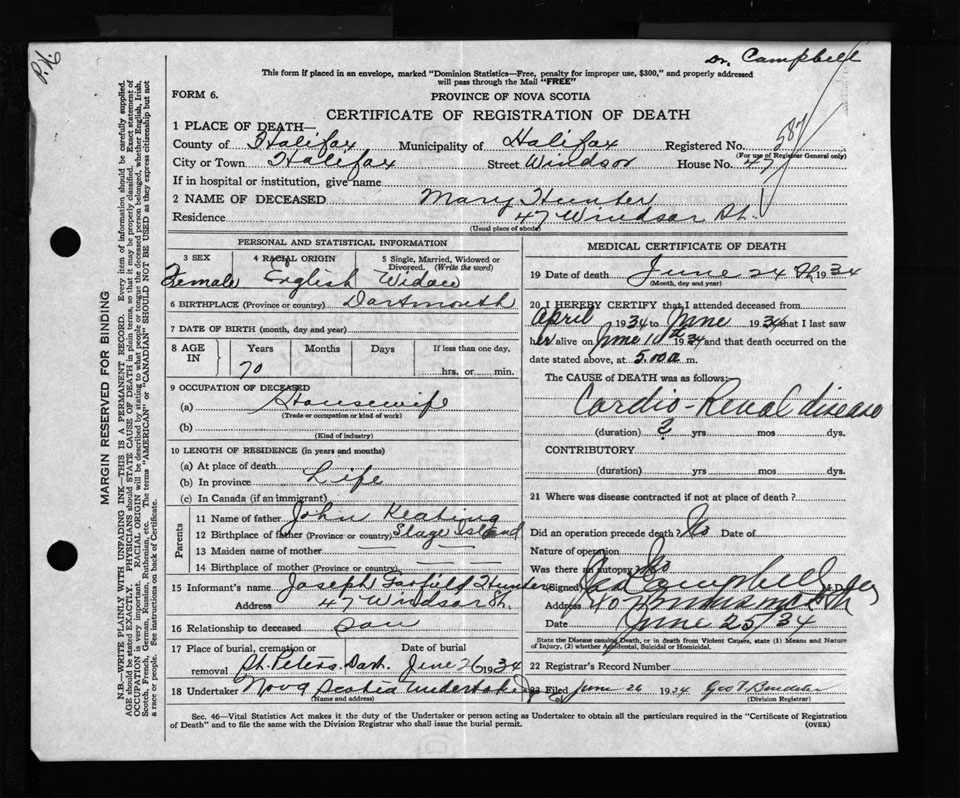 P.K.
Dr. Campbell
This form if placed in an envelope, marked "Dominion Statistics—Free, penalty for improper use, $300," and properly addressed
will pass through the Mail "FREE"
FORM 6.
PROVINCE OF NOVA SCOTIA
CERTIFICATE OF REGISTRATION OF DEATH
587
1 PLACE OF DEATH—
County of Halifax Municipality of Halifax Registered No.
(For use of Registrar General only)
City or Town Halifax Street Windsor House No. 47
If in hospital or institution, give name
2 NAME OF DECEASED Mary Hunter
Residence 47 Windsor St.
(Usual place of abode)
PERSONAL AND STATISTICAL INFORMATION
3 SEX 4 RACIAL ORIGIN 5 Single, Married, Widowed or
Divorced. (Write the word)
Female English Widow
6 BIRTHPLACE (Province or country) Dartmouth
7 DATE OF BIRTH (month, day and year)
8 AGE IN Years Months Days If less than one day,
70 hrs. or min.
9 OCCUPATION OF DECEASED
(a) Housewife
(Trade or occupation or kind of work)
(b)
(Kind of industry)
10 LENGTH OF RESIDENCE (in years and months)
(a) At place of death
(b) In province Life
(c) In Canada (if an immigrant)
Parents
11 Name of father John Keating
12 Birthplace of father (Province or country) Island
13 Maiden name of mother — —
14 Birthplace of mother (Province or country) — —
15 Informant's name Joseph Hunter
Address 47 Windsor St.
16 Relationship to deceased son
17 Place of burial, cremation or Date of burial
removal St. Peters, Dart. June 26 1934
18 Undertaker Nova Scotia Undertaking
(Name and address)
MEDICAL CERTIFICATE OF DEATH
19 Date of death June 24 th 1934
(Month, day and year)
20 I HEREBY CERTIFY that I attended deceased from
April 1934 to June 1934 that I last saw
her alive on June 10th 1934 and that death occurred on the
date stated above, at 5.00 a m.
The CAUSE of DEATH was as follows:
Cardio-Renal disease
(duration) ? yrs mos dys.
CONTRIBUTORY
(duration) yrs mos dys.
21 Where was disease contracted if not at place of death?
Did an operation precede death? No Date of
Nature of operation
Was there an autopsy No
(Signed) Campbell M.D.
Address
Date June 25/34
State the Disease causing Death, or in death from Violent Causes, state (1) Means and Nature
of Injury, (2) whether Accidental, Suicidal or Homicidal.
22 Registrar's Record Number
23 Filed June 26 1934 Geo
(Division Registrar)
Sec. 46—Vital Statistics Act makes it the duty of the Undertaker or person acting as Undertaker to obtain all the particulars required in the "Certificate of Registration
of Death" and to file the same with the Division Registrar who shall issue the burial permit. (OVER)
MARGIN RESERVED FOR BINDING
N.B.—WRITE PLAINLY WITH UNFADING INK—THIS IS A PERMANENT RECORD. Every item of information should be carefully supplied.
AGE should be stated EXACTLY. PHYSICIANS should STATE CAUSE OF DEATH in plain terms, so that it may be properly classified. Exact statement of
OCCUPATION is very important. RACIAL ORIGIN will be described by stating to what people or tongue the deceased person belonged, whether English, Irish,
Scotch, French, German, Russian, Ruthenian, etc. The terms "AMERICAN" or "CANADIAN" SHOULD NOT BE USED as they express citizenship but not
a race or people. See instructions on back of Certificate.